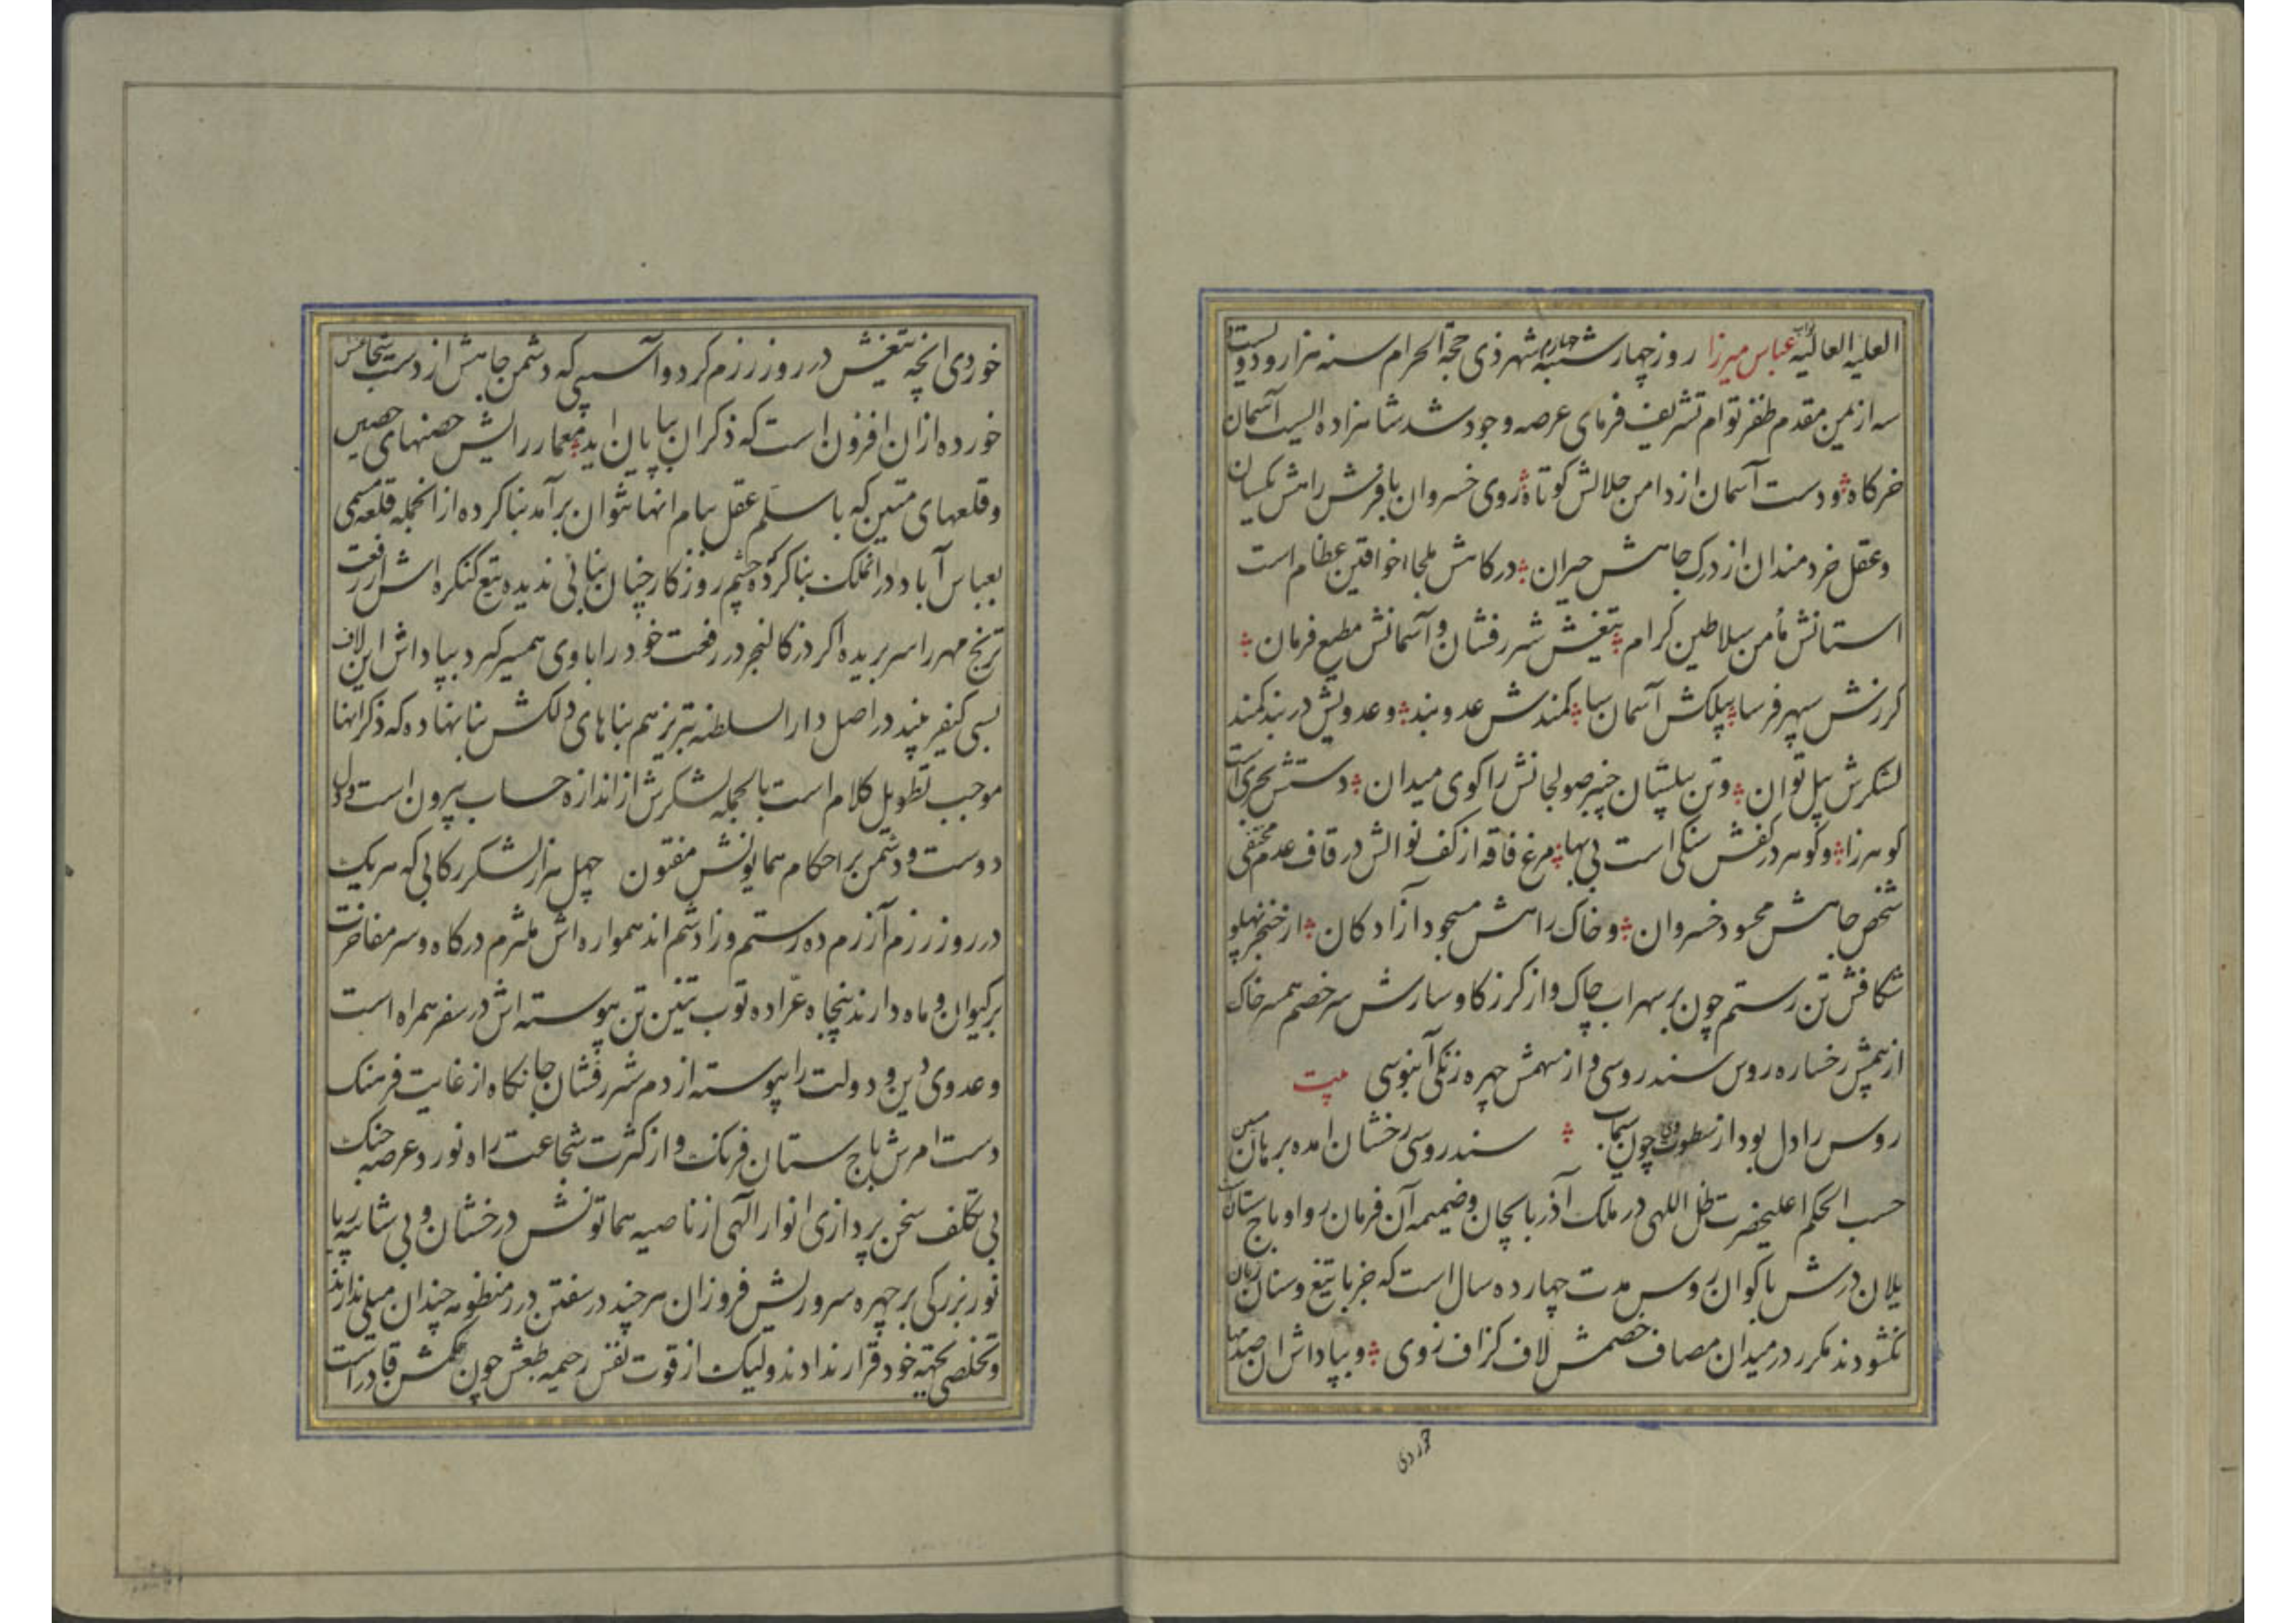 العلیه العالیه نواب عباس میرزا روز چهارشنبه چهارم شهر ذی حجة الحرام سنه هزار و دویست و
سه از یمن مقدم ظفر توام تشریف فرمای عرصه وجود شد شاهزاده ایست آسمان
خرکاه و دست آسمان از دامن جلالش کوتاه روی خسروان با فرش راهش یکسان
وعقل خردمندان از درک جاهش حیران درکاهش ملجاء خواقین عظام است
استانش مأمن سلاطین کرام تیغش شررفشان و آسمانش مطیع فرمان
کرزش سپهرفرسا پیلکش آسمان سا کمندش عدو بند و عدویش در بند کمند
لشکرش پیل توان و تن پیلتنان چنبر صولجانش را کوی میدان دستش بحری است
کوهرزا و کوهر در کفش سنکی است بی بها مرغ فاقه از کف نوالش در قاف عدم مختفی
شخص جاهش محسود خسروان و خاک راهش مسجود آزادکان از خنجر پهلو
شکافش تن رستم چون بر سهراب چاک و از کرز کاوسارش سر خصم همسر خاک
از بیمش رخساره روس سندروسی و از سهمش چهره زنکی آبنوسی بیت
روس را دل بود از سطوت وی چون سیماب سندروسی رخشان امده برهان سپس
حسب الحکم اعلیحضرت ظل اللهی در ملک آذربایجان و ضمیمه آن فرمان روا و باج ستان است
یلان درش باکوان روس مدت چهارده سال است که جز با تیغ و سنان زبان
نکشودند مکرر در میدان مصاف خصمش لاف کزاف زوی و بپاداش ان صدمها
خوردی
خوردی انچه تیغش در روز رزم کرد و آسیبی که دشمن جاهش از دست شجاعتش
خورده از ان افزون است که ذکر ان بپایان اید معمار رایش حصنهای حصین
وقلعهای متین که با سلم عقل ببام انها نتوان برآمد بنا کرده از انجمله قلعه مسمی
بعباس آباد در انملک بنا کرده که چشم روزکار چنان بنائی ندیده تیغ کنکره اش از رفعت
ترنج مهر را سر بریده اکر دز کالنجر در رفعت خود را با وی همسر کیرد بپاداش این لاف
بسی کیفر بیند در اصل دار السلطنه تبریز هم بناهای دلکش بنا نهاده که ذکر انها
موجب تطویل کلام است بالجمله لشکرش از اندازه حساب بیرون است و دل
دوست و دشمن بر احکام همایونش مفتون چهل هزار لشکر رکابی که هریک
در روز رزم آزرم ده رستم و زادشم اند همواره اش ملتزم درکاه و سر مفاخرت
بر کیوان و ماه دارند پنجاه عرّاده توپ تنین تن پیوسته اش در سفر همراه است
وعدوی دین و دولت را پیوسته از دم شررفشان جانکاه از غایت فرهنک
دست امرش باج ستان فرنک و از کثرت شجاعت راه نورد عرصه جنک
بی تکلف سخن پردازی انوار الهی از ناصیه همایونش درخشان و بی شائبه ریا
نور بزرکی بر چهره سروریش فروزان هر چند در سفتن درر منظومه چندان میلی ندارند
وتخلصی بجهته خود قرار ندادند ولیک از قوت نفس رحیمه طبعش چون حکمش قادر است